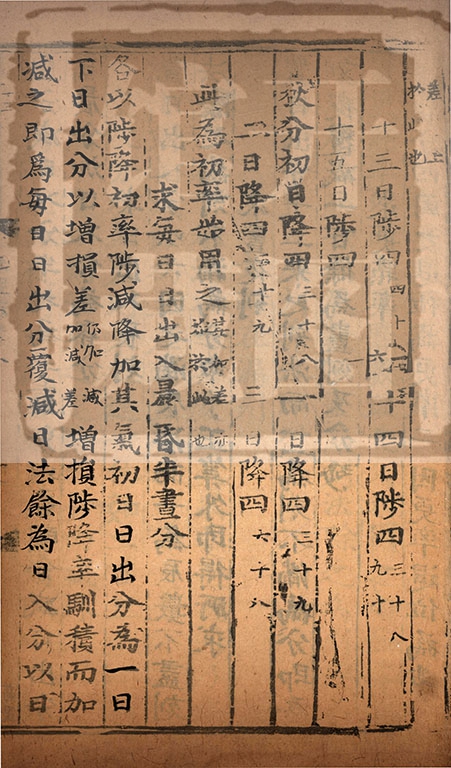 差止於此也
十三日陟四四十六十四日陟四三十八九十
十五日陟四一
秋分初日降四三十八一日降四三十九
二日降四五十九三日降四六十八
此為初率始用之其加差亦始於此也
求每日日出入晨昏半晝分
各以陟降初率陟減降加其氣初日日出分為一日
下日出分以增損差仍加減加減差增損陟降率馴積而加
減之即為每日日出分覆減日法餘為日入分以日